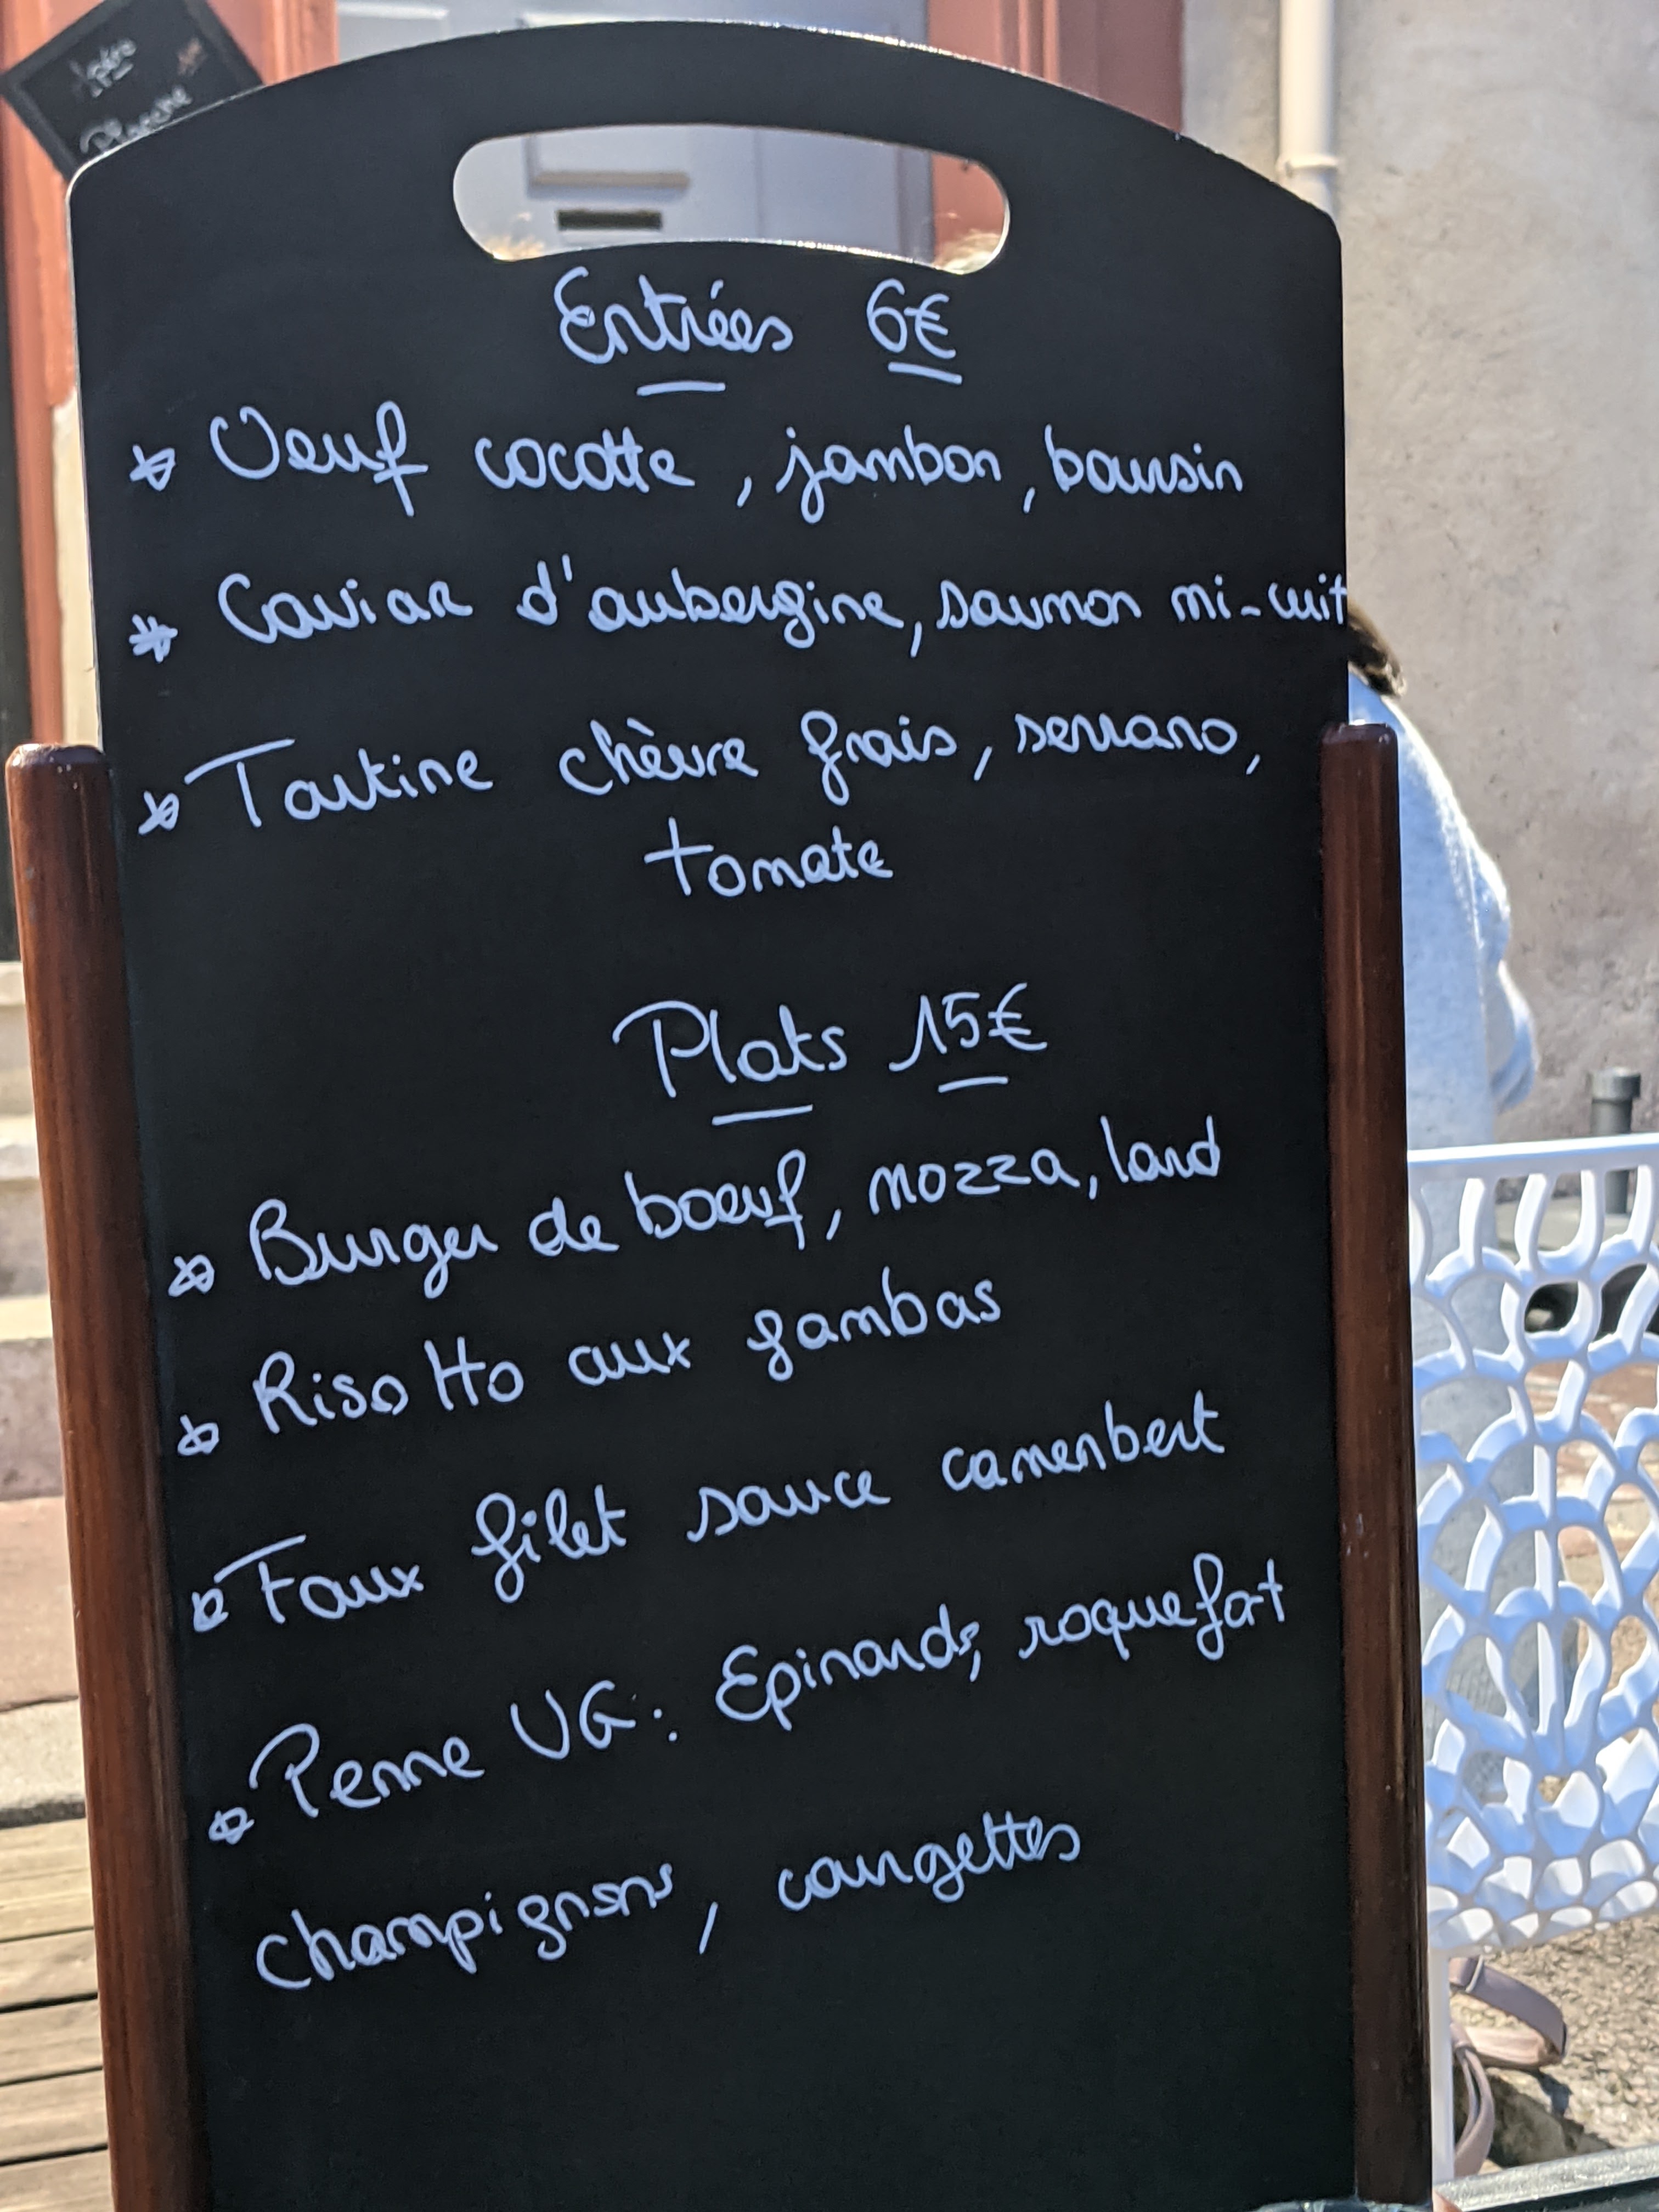 Apéro
Planche
Entrées 6€
* Oeuf cocotte, jambon, boursin
* Caviar d'aubergine, saumon mi-cuit
* Tartine chèvre frais, serrano,
tomate
Plats 15€
* Burger de boeuf, mozza, lard
* Risotto aux gambas
* Faux filet sauce camenbert
* Penne VG: Epinards, roquefort
champignons, courgettes